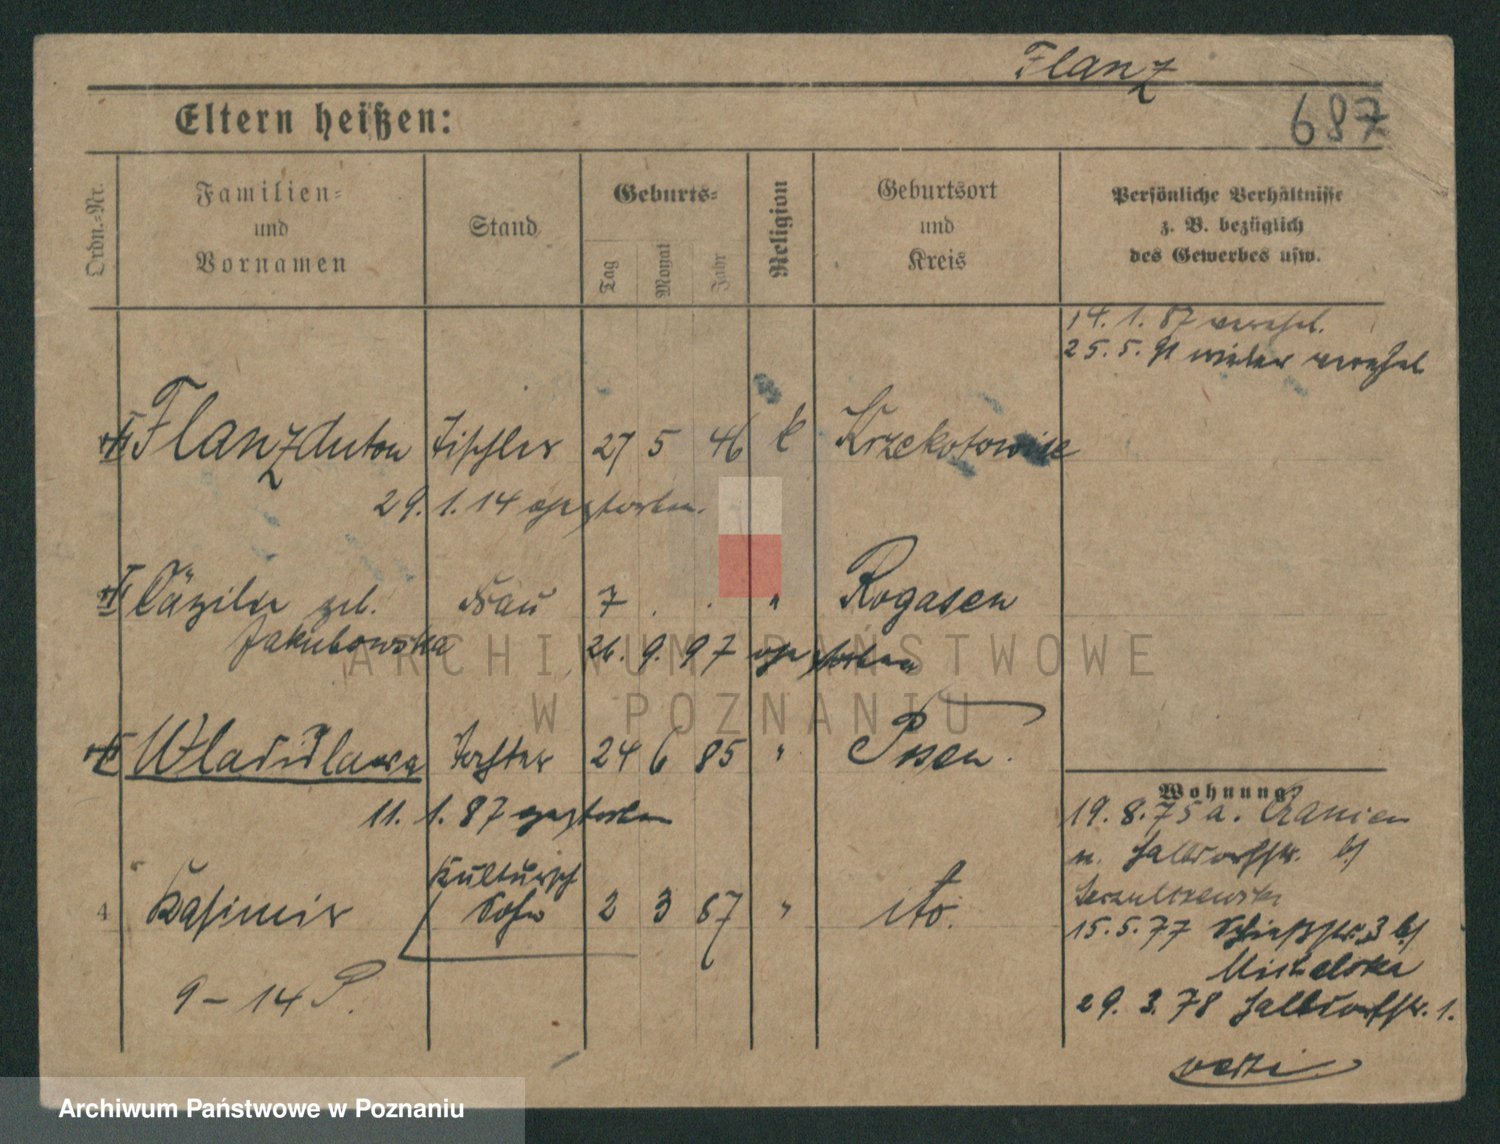 Flanz
687
Eltern heißen:
Ordn.-Nr.
Familien-
und
Vornamen
Stand
Geburts-
Tag
Monat
Jahr
Religion
Geburtsort
und
Kreis
Persönliche Verhältnisse
z. B. bezüglich
des Gewerbes usw.
14. 1. 87 verehel.
25. 5. 91 wieder verehel.
Flanz Anton Tischler 27 5 46 k Krzekotowice
29. 1. 14 gestorben.
Cäzilie geb. Frau 7 . . " Rogasen
Jakubowska
26. 9. 97 gestorben
Wladislawa Tochter 24 6 85 " Posen.
11. 1. 87 gestorben
4 Kasimir Sohn 2 3 87 " ito.
9 – 14 P.
Wohnung
19. 8. 75 a.
u. Halbdorfstr. b/
15. 5. 77 Schießstr. 3 b/
Michalska
29. 3. 78 Halbdorfstr. 1.
ARCHIWUM PAŃSTWOWE
W POZNANIU
Archiwum Państwowe w Poznaniu